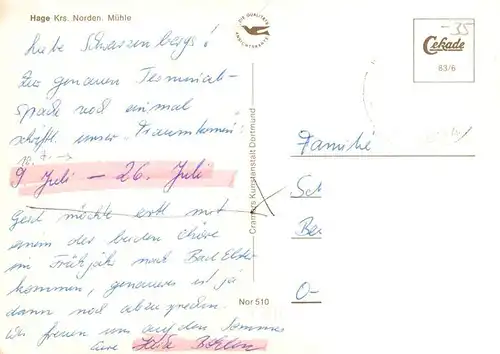 Hage Krs. Norden. Mühle
DIE QUALITÄTS
ANSICHTSKARTE
-35
Cekade
83/6
Liebe Schwarzenbergs!
Zur genauen Terminab-
sprache noch einmal
schriftl. unser "Traumtermin":
10. 7. →
9. Juli – 26. Juli
Gerd möchte evtl. mit
einem der beiden Chöre
im Frühjahr nach Bad Elster
kommen, genaueres ist ja
dann noch abzusprechen.
Wir freuen uns auf den Sommer
Eure
Cramers Kunstanstalt Dortmund
Nor 510
Familie
Sch
Be
O-